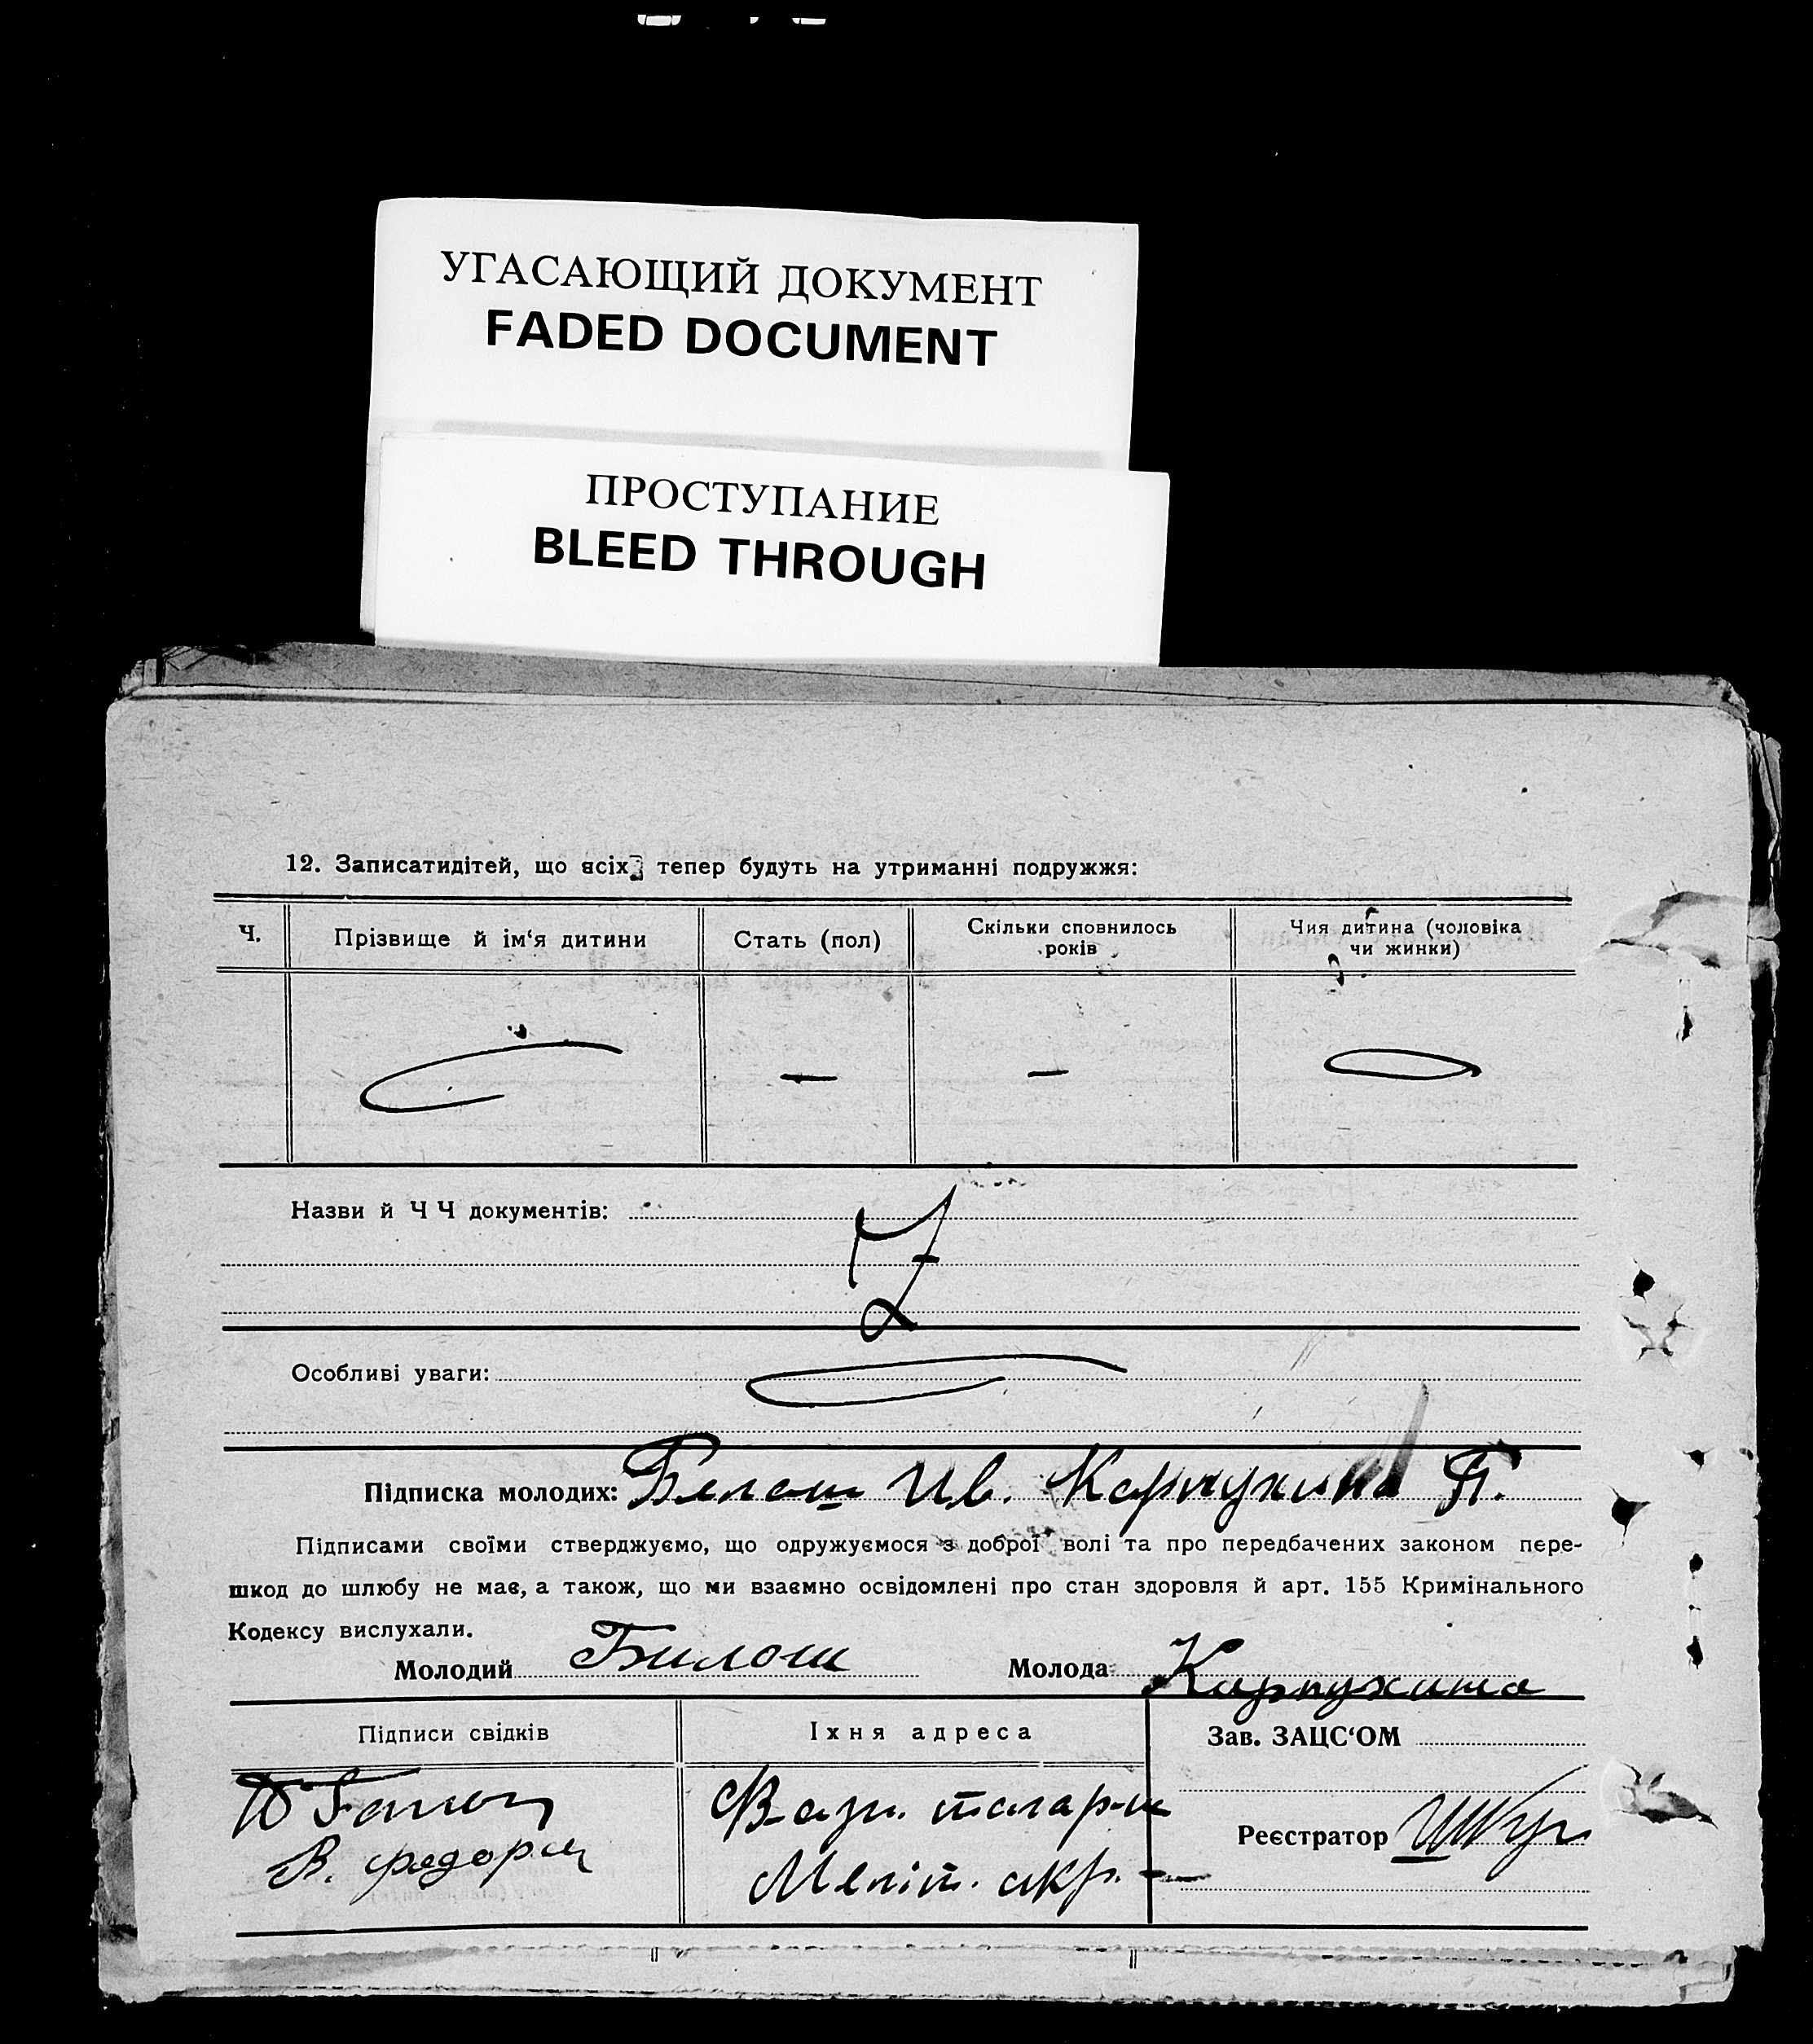 УГАСАЮЩИЙ ДОКУМЕНТ
FADED DOCUMENT
ПРОСТУПАНИЕ
BLEED THROUGH
12. Записатидітей, що всіх тепер будуть на утриманні подружжя:
Ч.
Прізвище й ім‘я дитини
Стать (пол)
Скільки сповнилось
років
Чия дитина (чоловіка
чи жинки)
—
—
Назви й Ч Ч документів:
Особливі уваги:
Підписка молодих: Білаш Ив. Карпухина П.
Підписами своїми стверджуємо, що одружуємося з доброї волі та про передбачених законом пере-
шкод до шлюбу не має, а також, що ми взаємно освідомлені про стан здоровля й арт. 155 Кримінального
Кодексу вислухали.
Молодий Билош Молода Карпухина
Підписи свідків
Їхня адреса
Зав. ЗАЦС‘ОМ
В.
Меліт. окр. —
Реєстратор